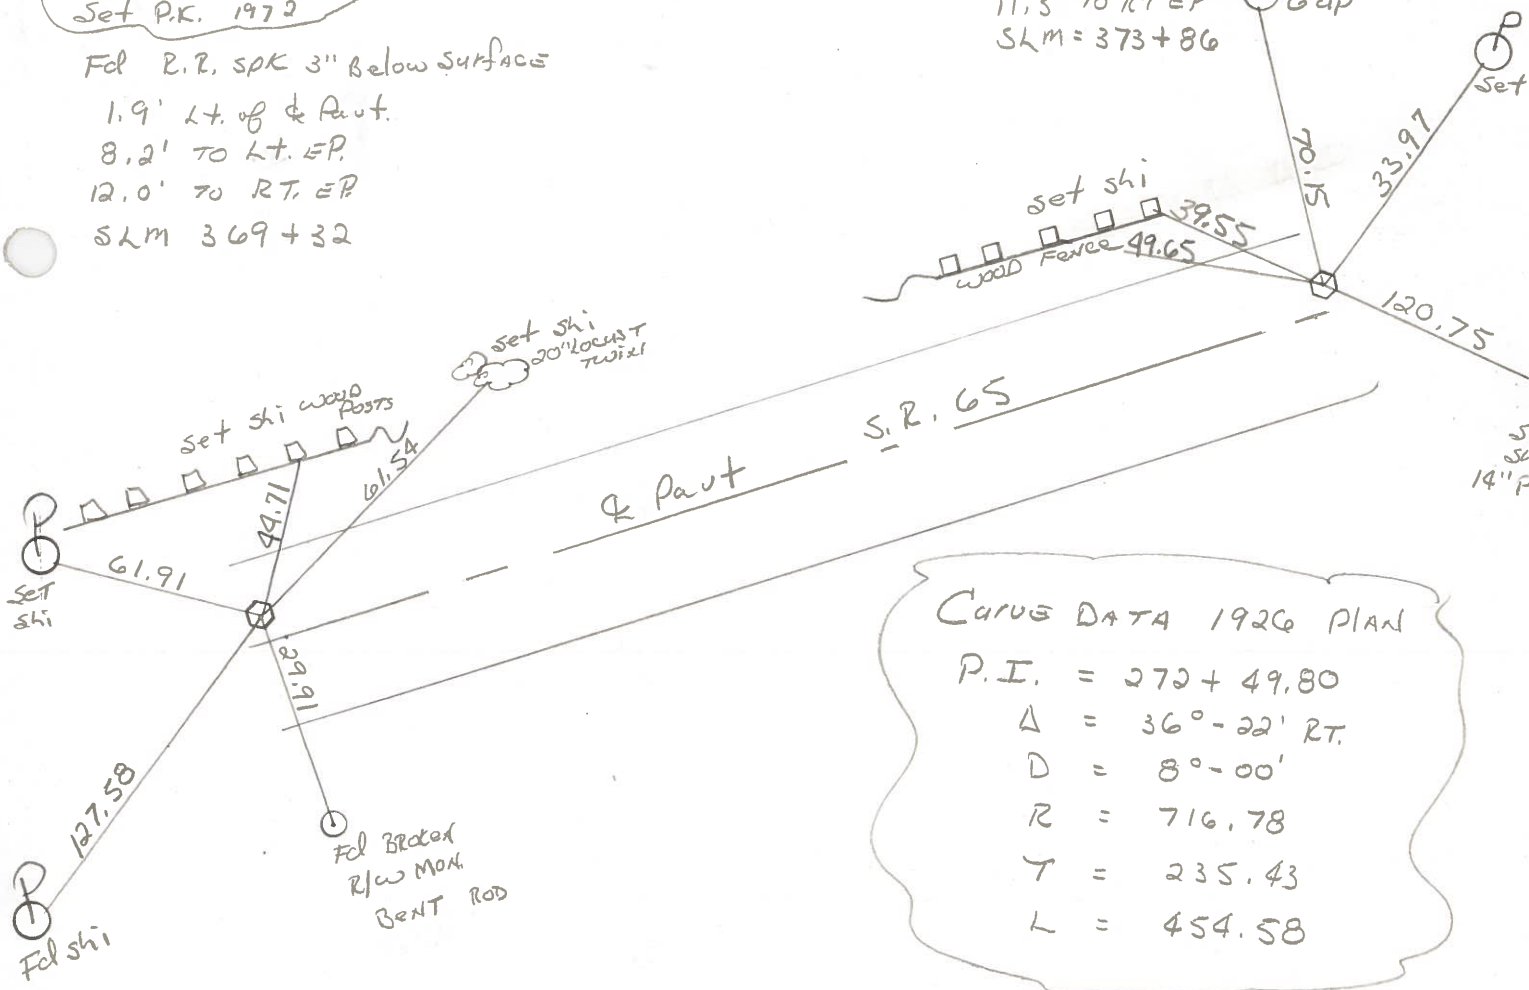 Set P.K. 1972
Fd R.R. SPK 3" Below SurfACE
1.9' Lt. of ℄ Pavt.
8.2' TO Lt. EP.
12.0' TO RT. EP.
SLM 369+32
11.5 TO RT EP
SLM = 373+86
Set
70.15
33.97
set shi
39.55
49.65
WOOD FENCE
120.75
set shi
20" LOCUST
TWIN
set shi WOOD
POSTS
61.54
44.71
S.R. 65
℄ Pavt
14" P
61.91
SET
shi
29.91
127.58
Fd BROKEN
R/W MON.
BENT ROD
Fd shi
CurvE DATA 1926 PlAN
P.I. = 272+49.80
Δ = 36°-22' RT.
D = 8°-00'
R = 716.78
T = 235.43
L = 454.58